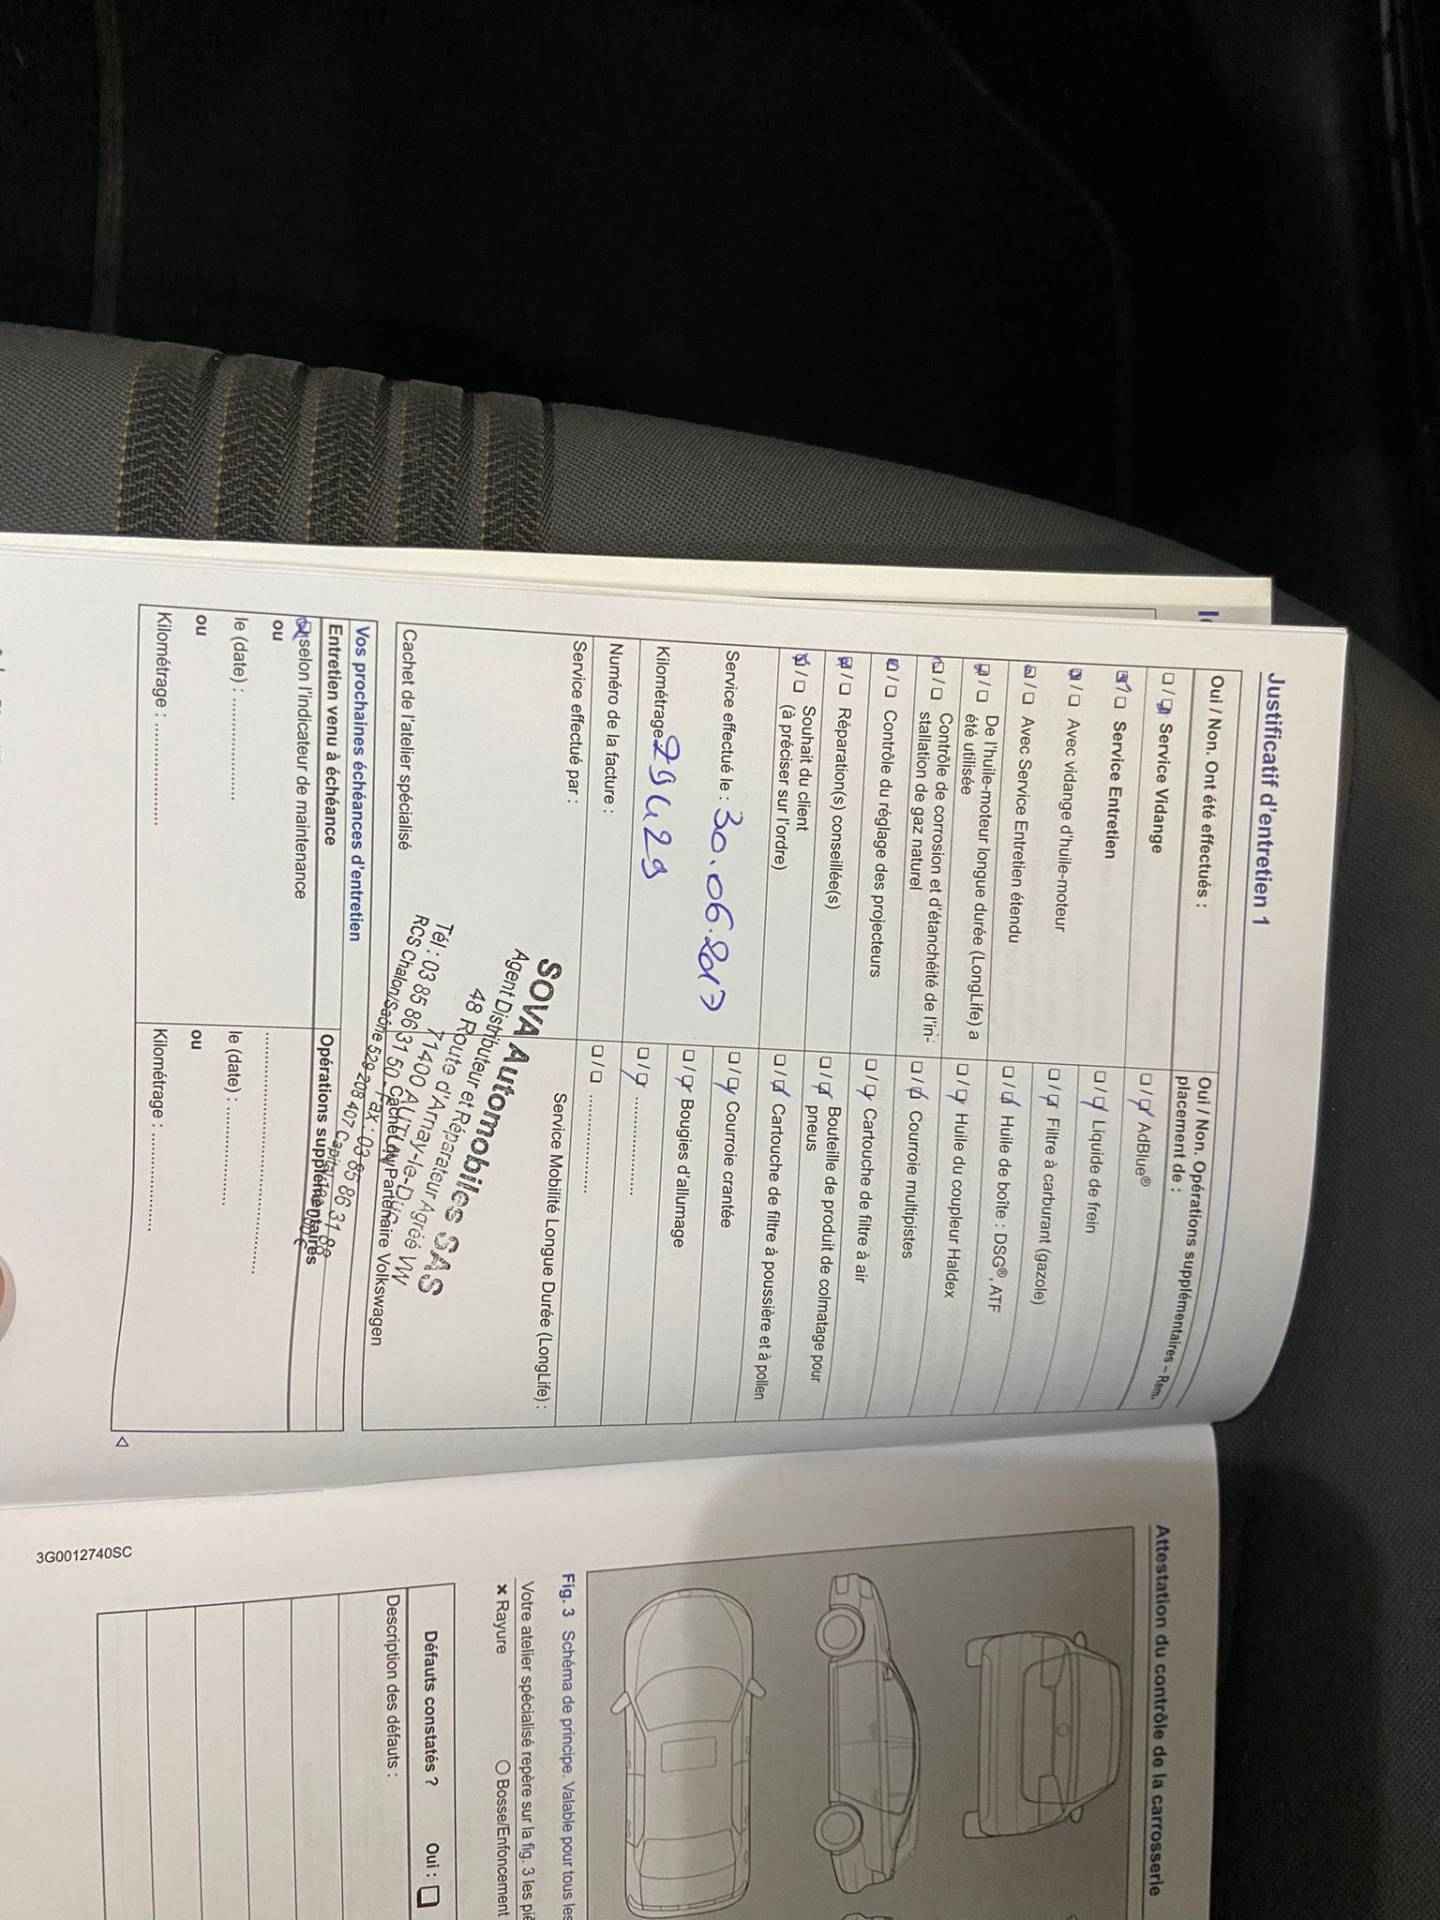 Justificatif d'entretien 1
Oui / Non. Ont été effectués :
Oui / Non. Opérations supplémentaires – Rem-
placement de :
Service Vidange
AdBlue®
Service Entretien
Liquide de frein
Avec vidange d'huile-moteur
Filtre à carburant (gazole)
Avec Service Entretien étendu
Huile de boîte : DSG®, ATF
De l'huile-moteur longue durée (LongLife) a
été utilisée
Huile du coupleur Haldex
Contrôle de corrosion et d'étanchéité de l'in-
stallation de gaz naturel
Courroie multipistes
Contrôle du réglage des projecteurs
Cartouche de filtre à air
Réparation(s) conseillée(s)
Bouteille de produit de colmatage pour
pneus
Souhait du client
(à préciser sur l'ordre)
Cartouche de filtre à poussière et à pollen
Service effectué le : 30.06.2017
Courroie crantée
Bougies d'allumage
Kilométrage 29429
Numéro de la facture :
Service effectué par :
Service Mobilité Longue Durée (LongLife) :
SOVA Automobiles SAS
Agent Distributeur et Réparateur Agréé VW
48 Route d'Arnay-le-Duc
71400 AUTUN
Tél : 03 85 86 31 50 - Fax : 03 85 86 31 88
RCS Chalon/Saône 529 208 407
Cachet de l'atelier spécialisé
Partenaire Volkswagen
Vos prochaines échéances d'entretien
Entretien venu à échéance
Opérations supplémentaires
selon l'indicateur de maintenance
ou
le (date) : ....................
le (date) : ....................
ou
ou
Kilométrage : ....................
Kilométrage : ....................
Attestation du contrôle de la carrosserie
Fig. 3 Schéma de principe. Valable pour tous les
Votre atelier spécialisé repère sur la fig. 3 les
× Rayure
○ Bosse/Enfoncement
Défauts constatés ? Oui :
Description des défauts :
3G0012740SC